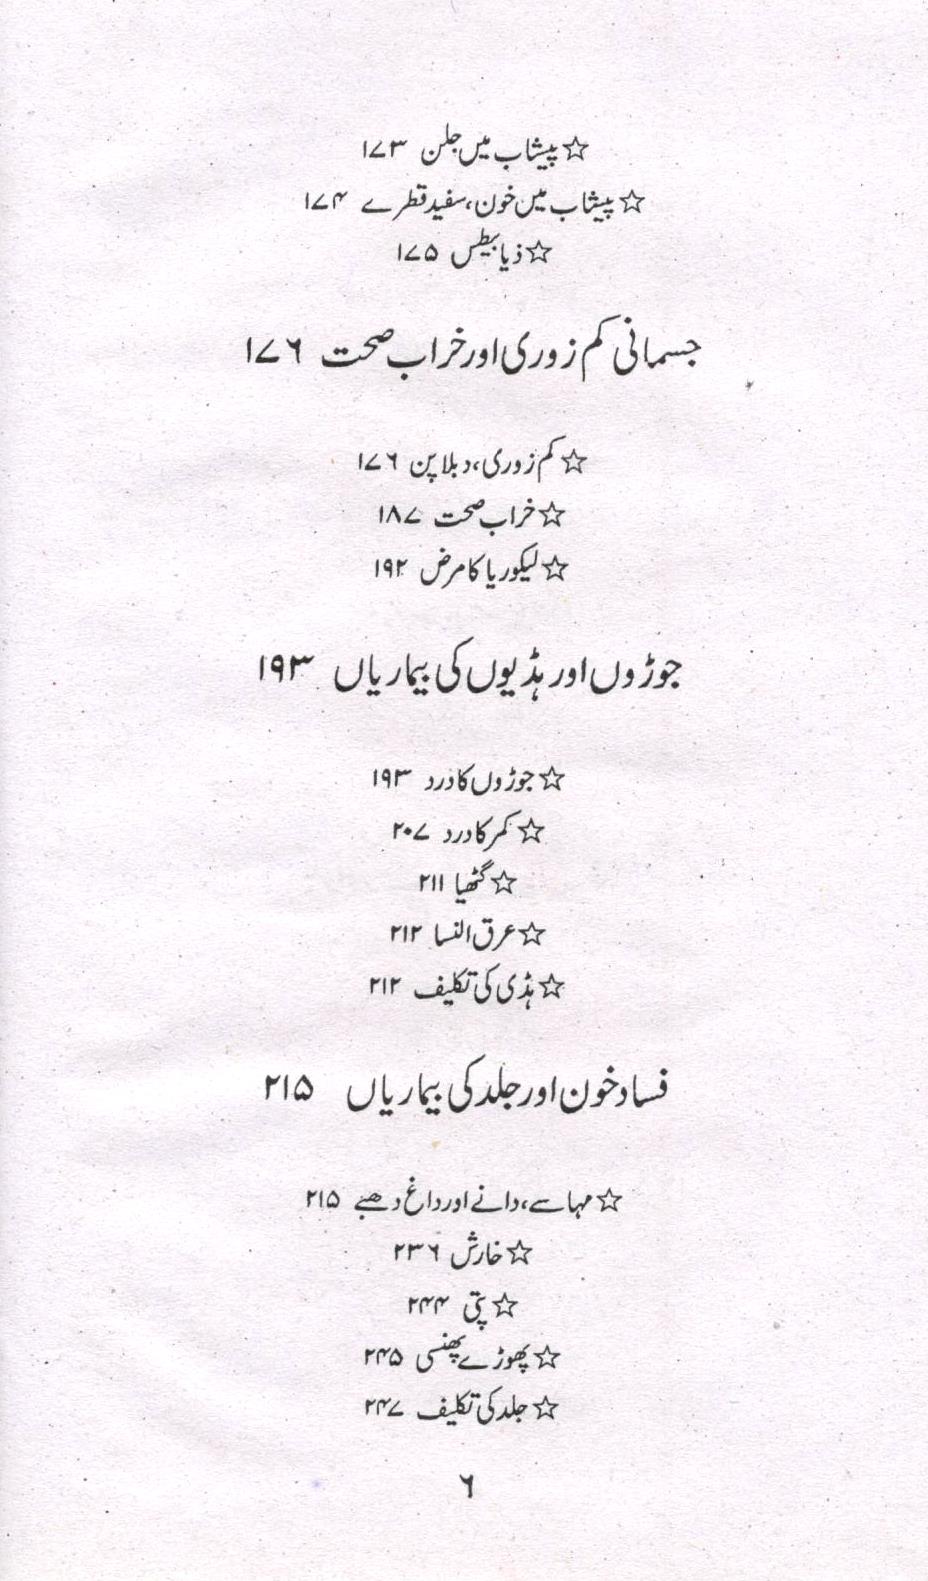 ☆ پیشاب میں جلن ۱۷۳
☆ پیشاب میں خون، سفید قطرے ۱۷۴
☆ ذیابیطس ۱۷۵
جسمانی کم زوری اور خراب صحت ۱۷۶
☆ کم زوری، دبلا پن ۱۷۶
☆ خراب صحت ۱۸۷
☆ لیکوریا کا مرض ۱۹۲
جوڑوں اور ہڈیوں کی بیماریاں ۱۹۳
☆ جوڑوں کا درد ۱۹۳
☆ کمر کا درد ۲۰۷
☆ گٹھیا ۲۱۱
☆ عرق النسا ۲۱۲
☆ ہڈی کی تکلیف ۲۱۲
فساد خون اور جلد کی بیماریاں ۲۱۵
☆ مہاسے، دانے اور داغ دھبے ۲۱۵
☆ خارش ۲۳۶
☆ پتی ۲۴۴
☆ پھوڑے پھنسی ۲۴۵
☆ جلد کی تکلیف ۲۴۷
۶